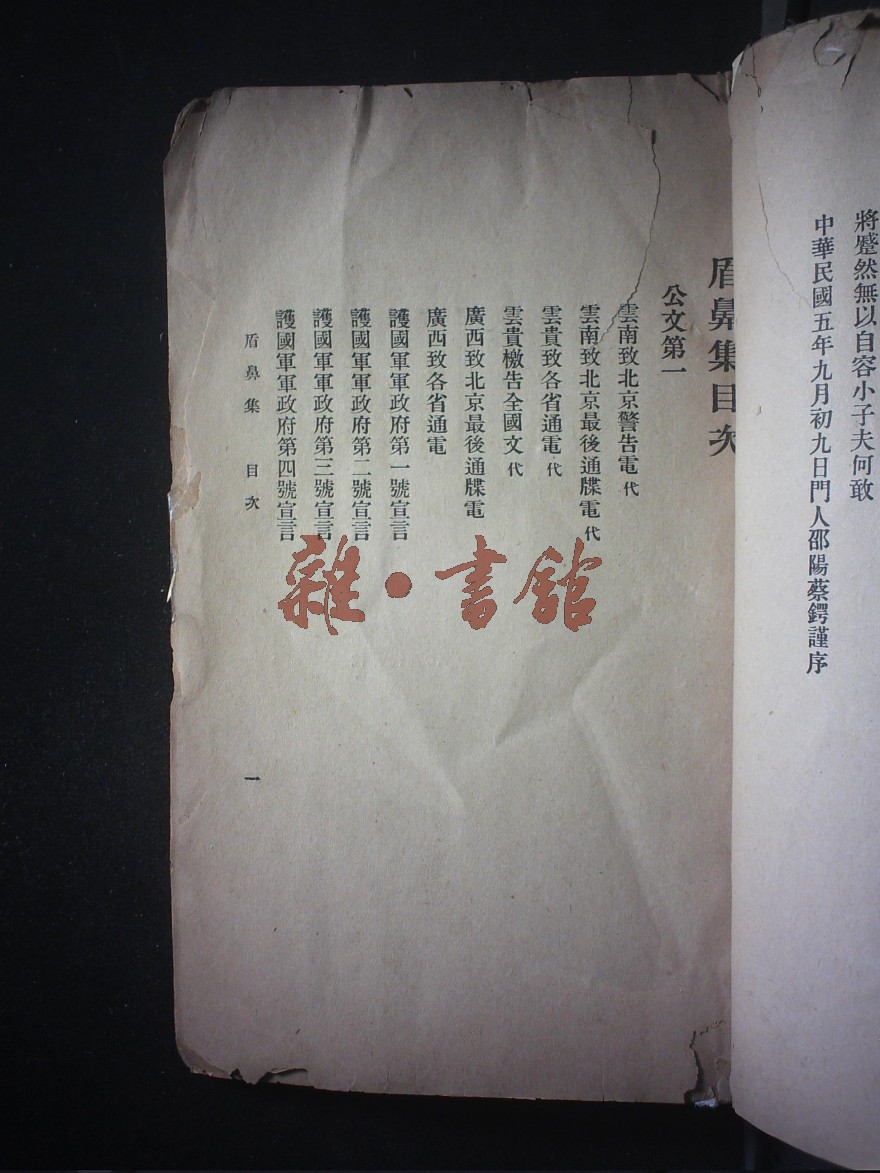 將蹙然無以自容小子夫何敢
中華民國五年九月初九日門人邵陽蔡鍔謹序
盾鼻集目次
公文第一
雲南致北京警告電 代
雲南致北京最後通牒電 代
雲貴致各省通電 代
雲貴檄告全國文 代
廣西致北京最後通牒電
廣西致各省通電
護國軍軍政府第一號宣言
護國軍軍政府第二號宣言
護國軍軍政府第三號宣言
護國軍軍政府第四號宣言
盾鼻集 目次
一
雜·書館